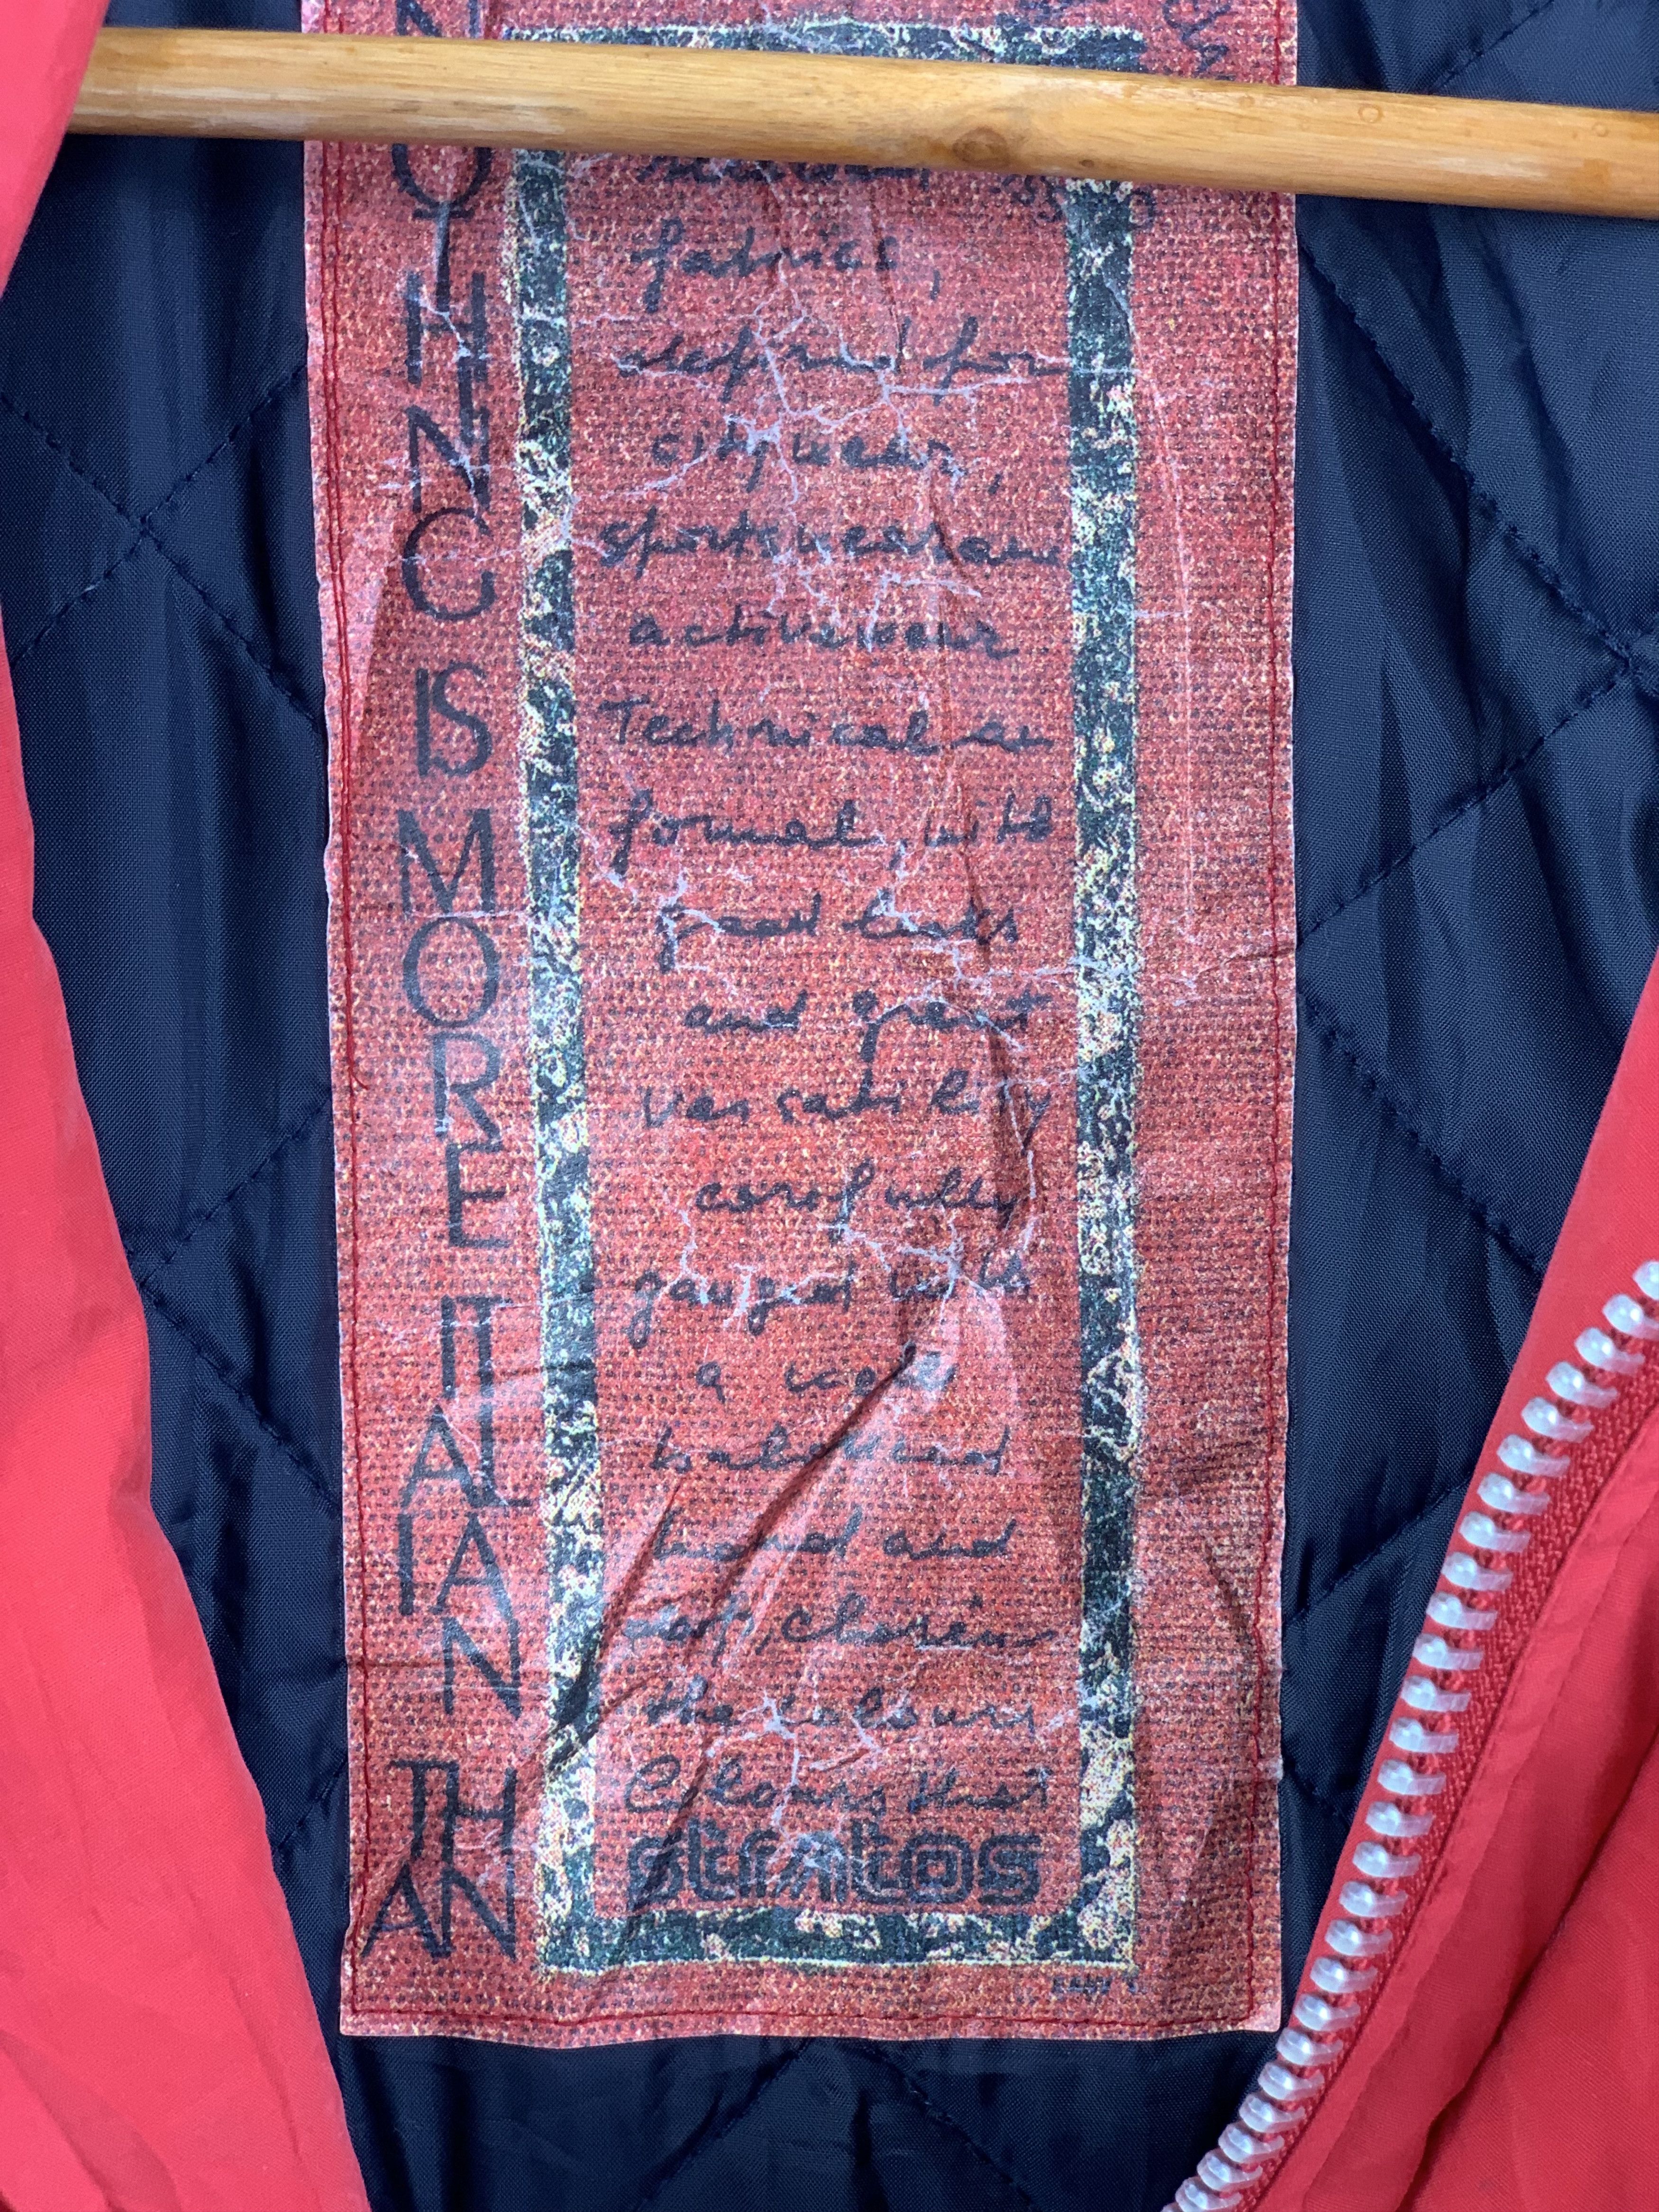 NOTHING IS MORE ITALIAN THAN
fabrics,
defined for
city wear,
sportswear and
activewear
Technical and
formal, with
good looks
and great
versatility
carefully
gauged with
a well
balanced
hand and
the colours
Colours that
stratos